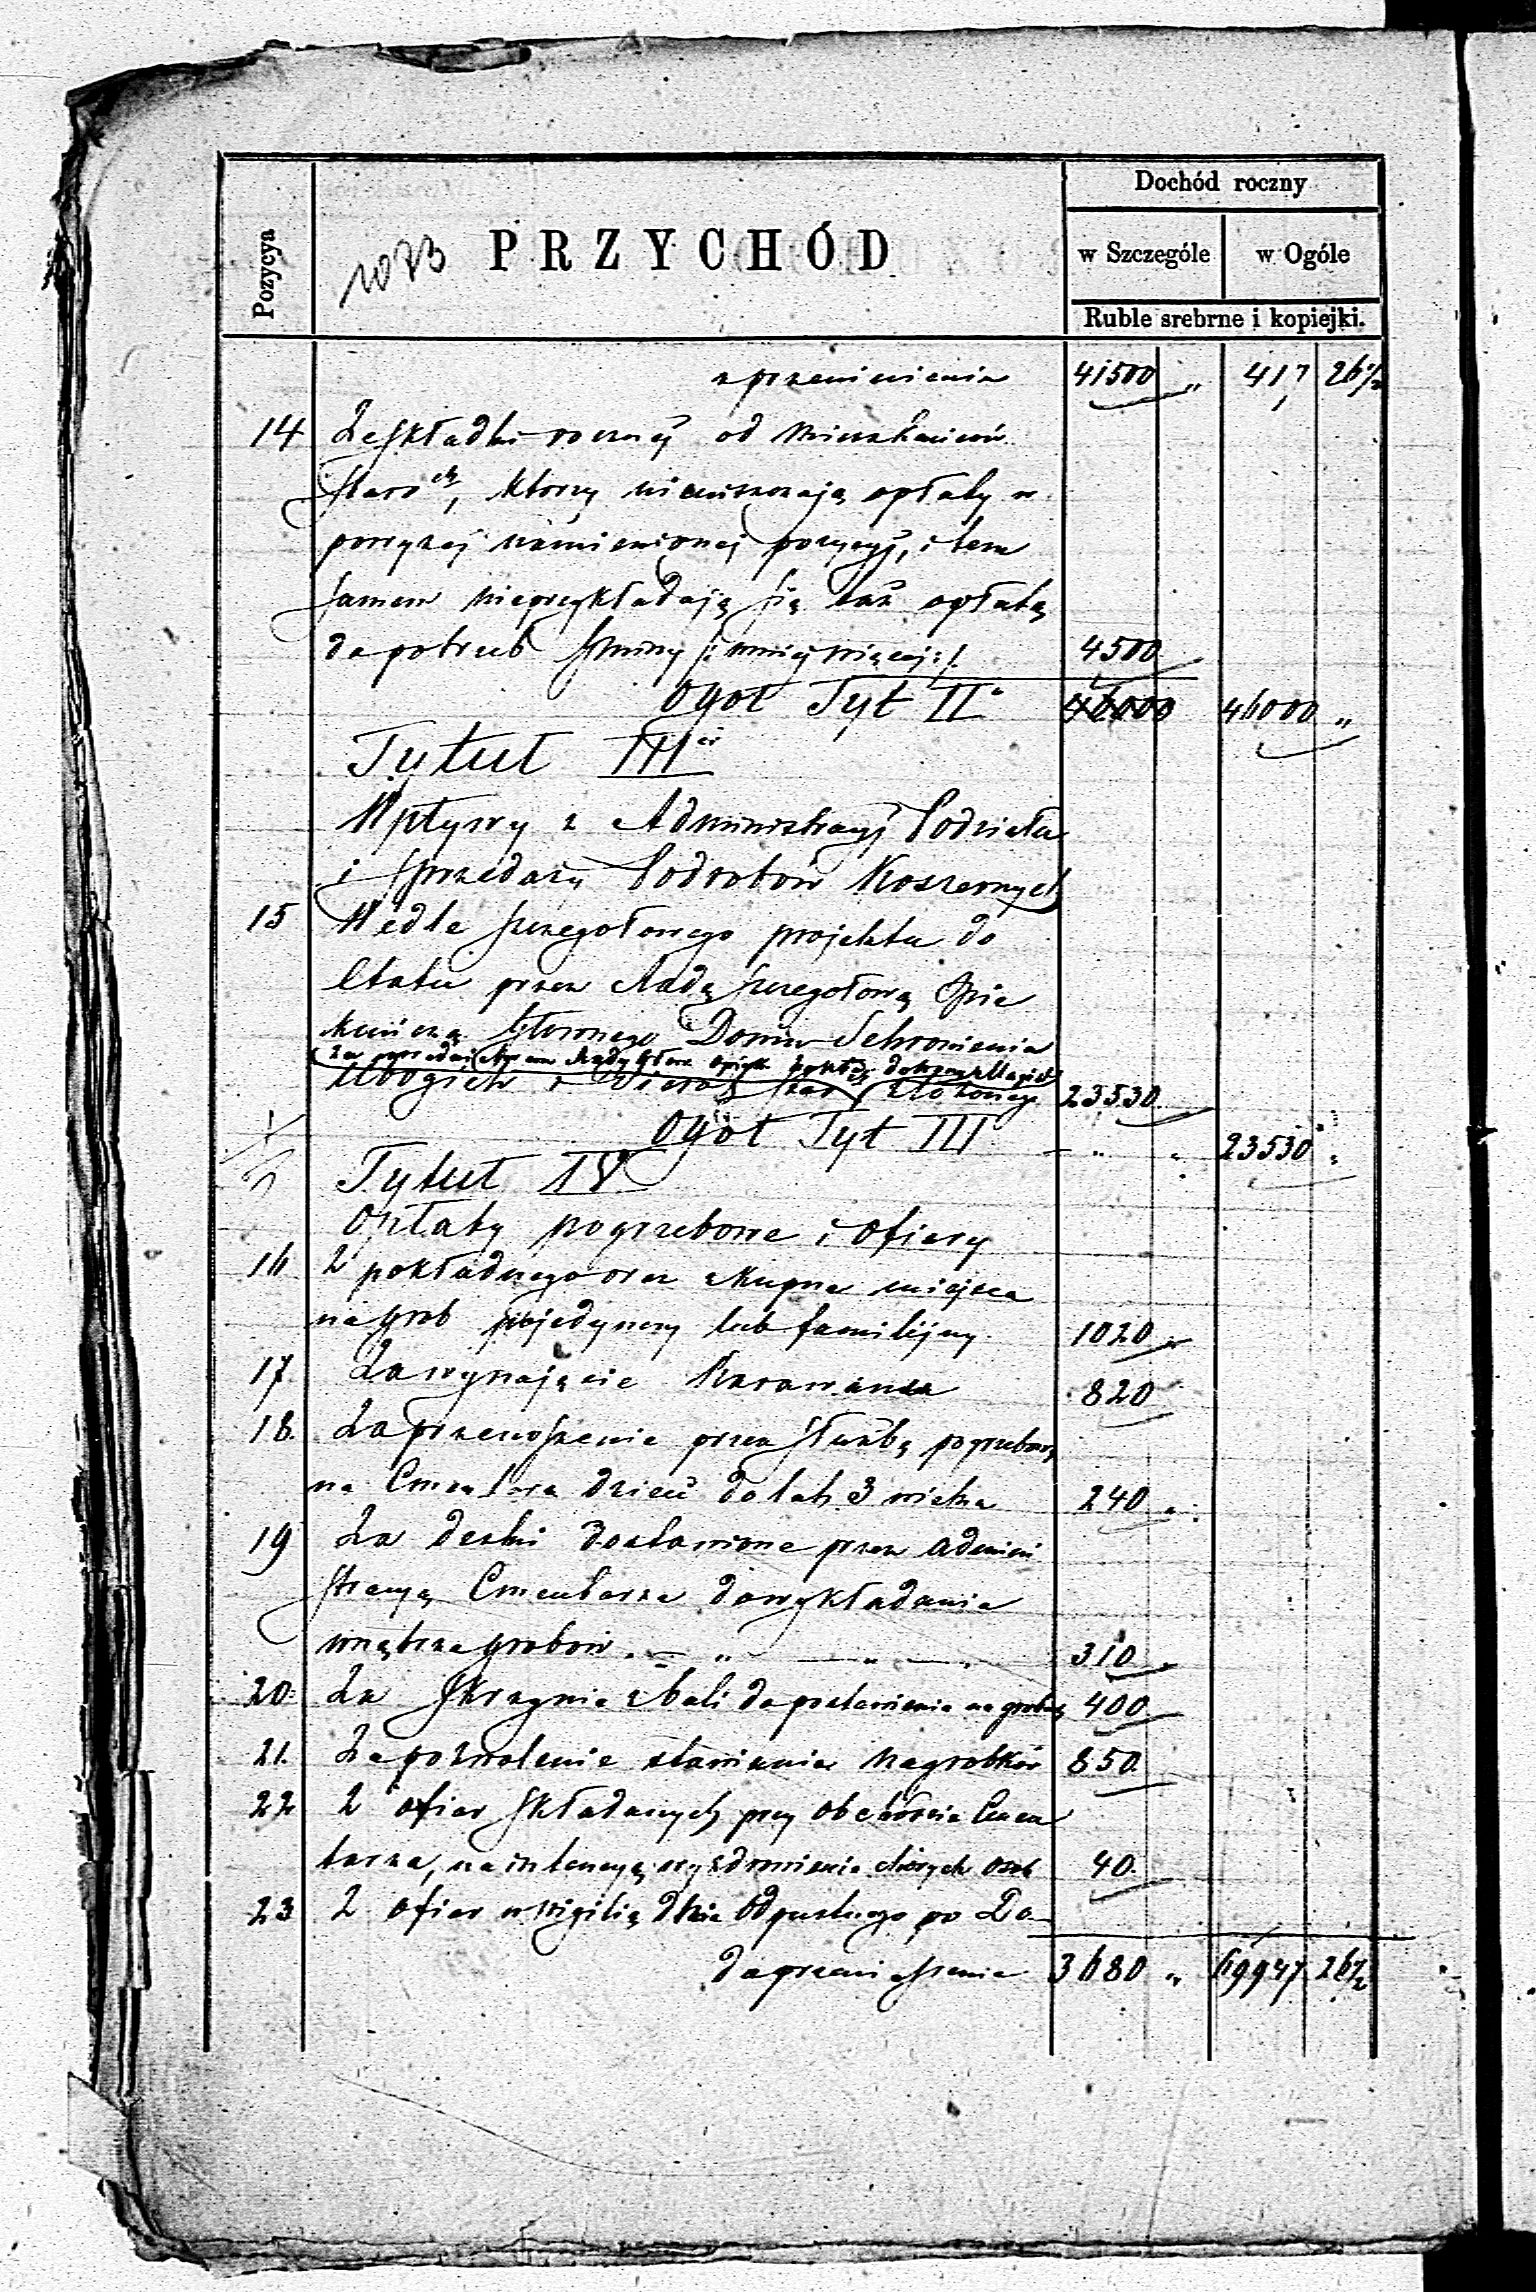 Dochód roczny
Pozycya
1073
PRZYCHÓD
w Szczególe
w Ogóle
Ruble srebrne i kopiejki.
z przeniesienia 41500 „ 417 26½
14 Ze składki rocznej od mieszkańców
Staroz., którzy nieuiszczają opłaty w
powyżej namienionej pozycyi, i tem
samem nieprzykładają się tąż opłatą
do potrzeb Gminy /: mniej więcej :/. 4500
Ogół Tyt II° 46000 46000 „
Tytuł III
Wpływy z Administracyi
i sprzedaży Podrobów Koszernych
15 Wedle szczegółowego projektu do
Etatu przez Radę szczegółową Opie
kuńczą Głównego Domu Schronienia
Ubogich i Sierot Star złożonego 23530
Ogół Tyt III „ „ 23530 „
Tytuł IV
Opłaty pogrzebowe i Ofiary
16 Z pokładnego oraz zkupna miejsca
na grob pojedynczy lub familijny. 1020 „
17 Za wynajęcie Karawanu 820
18. Za przenoszenie przez służbę pogrzebową
na Cmentarz dzieci do lat 3 wieku 240 „
19 Za deski dostawione przez admini
stracyą Cmentarza do wykładania
wnętrza grobów . — „ — „ — . 310 „
20 Za skrzynie z bali do postawienia na grobach 400
21. Za pozwolenie stawiania Nagrobków 850.
22 Z ofiar składanych przy obchodzie Cmen
tarza, na intencyą uzdrowienia chorych osób 40.
23 Z ofiar w wigilią Dnia Odpustnego po Do-
do przeniesienia 3680 „ 69947 26½